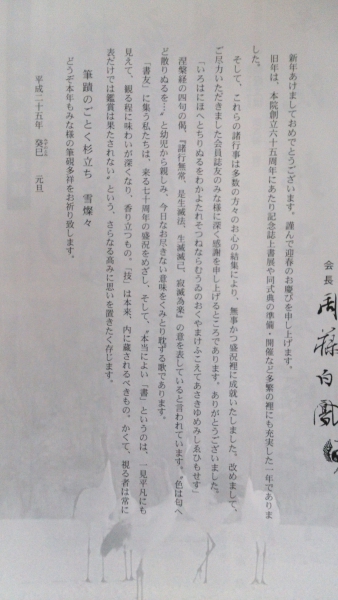 会長 周藤白鳳
新年あけましておめでとうございます。謹んで迎春のお慶びを申し上げます。
旧年は、本院創立六十五周年にあたり記念誌上書展や同式典の準備・開催など多繁の裡にも充実した一年でありま
した。
そして、これらの諸行事は多数の方々のお心の結集により、無事かつ盛況裡に成就いたしました。改めまして、
ご尽力いただきました会員誌友のみな様に深く感謝を申し上げるところであります。ありがとうございました。
「いろはにほへとちりぬるをわかよたれそつねならむうゐのおくやまけふこえてあさきゆめみしゑひもせす」
涅槃経の四句の偈、『諸行無常、是生滅法、生滅滅已、寂滅為楽』の意を表していると言われています。"色は匂へ
ど散りぬるを…"と幼児から親しみ、今日なお尽きない意味をくみとり耽ずる歌であります。
「書友」に集う私たちは、来る七十周年の盛況をめざし、そして、"本当によい「書」というのは、一見平凡にも
見えて、観る程に味わいが深くなり、香り立つもの。「技」は本来、内に蔵されるべきもの。かくて、視る者は常に
表だけでは鑑賞は果たされない"という、さらなる高みに思いを置きたく存じます。
筆蹟のごとく杉立ち 雪燦々
どうぞ本年もみな様の筆硯多祥をお祈り致します。
平成二十五年 癸巳 元旦